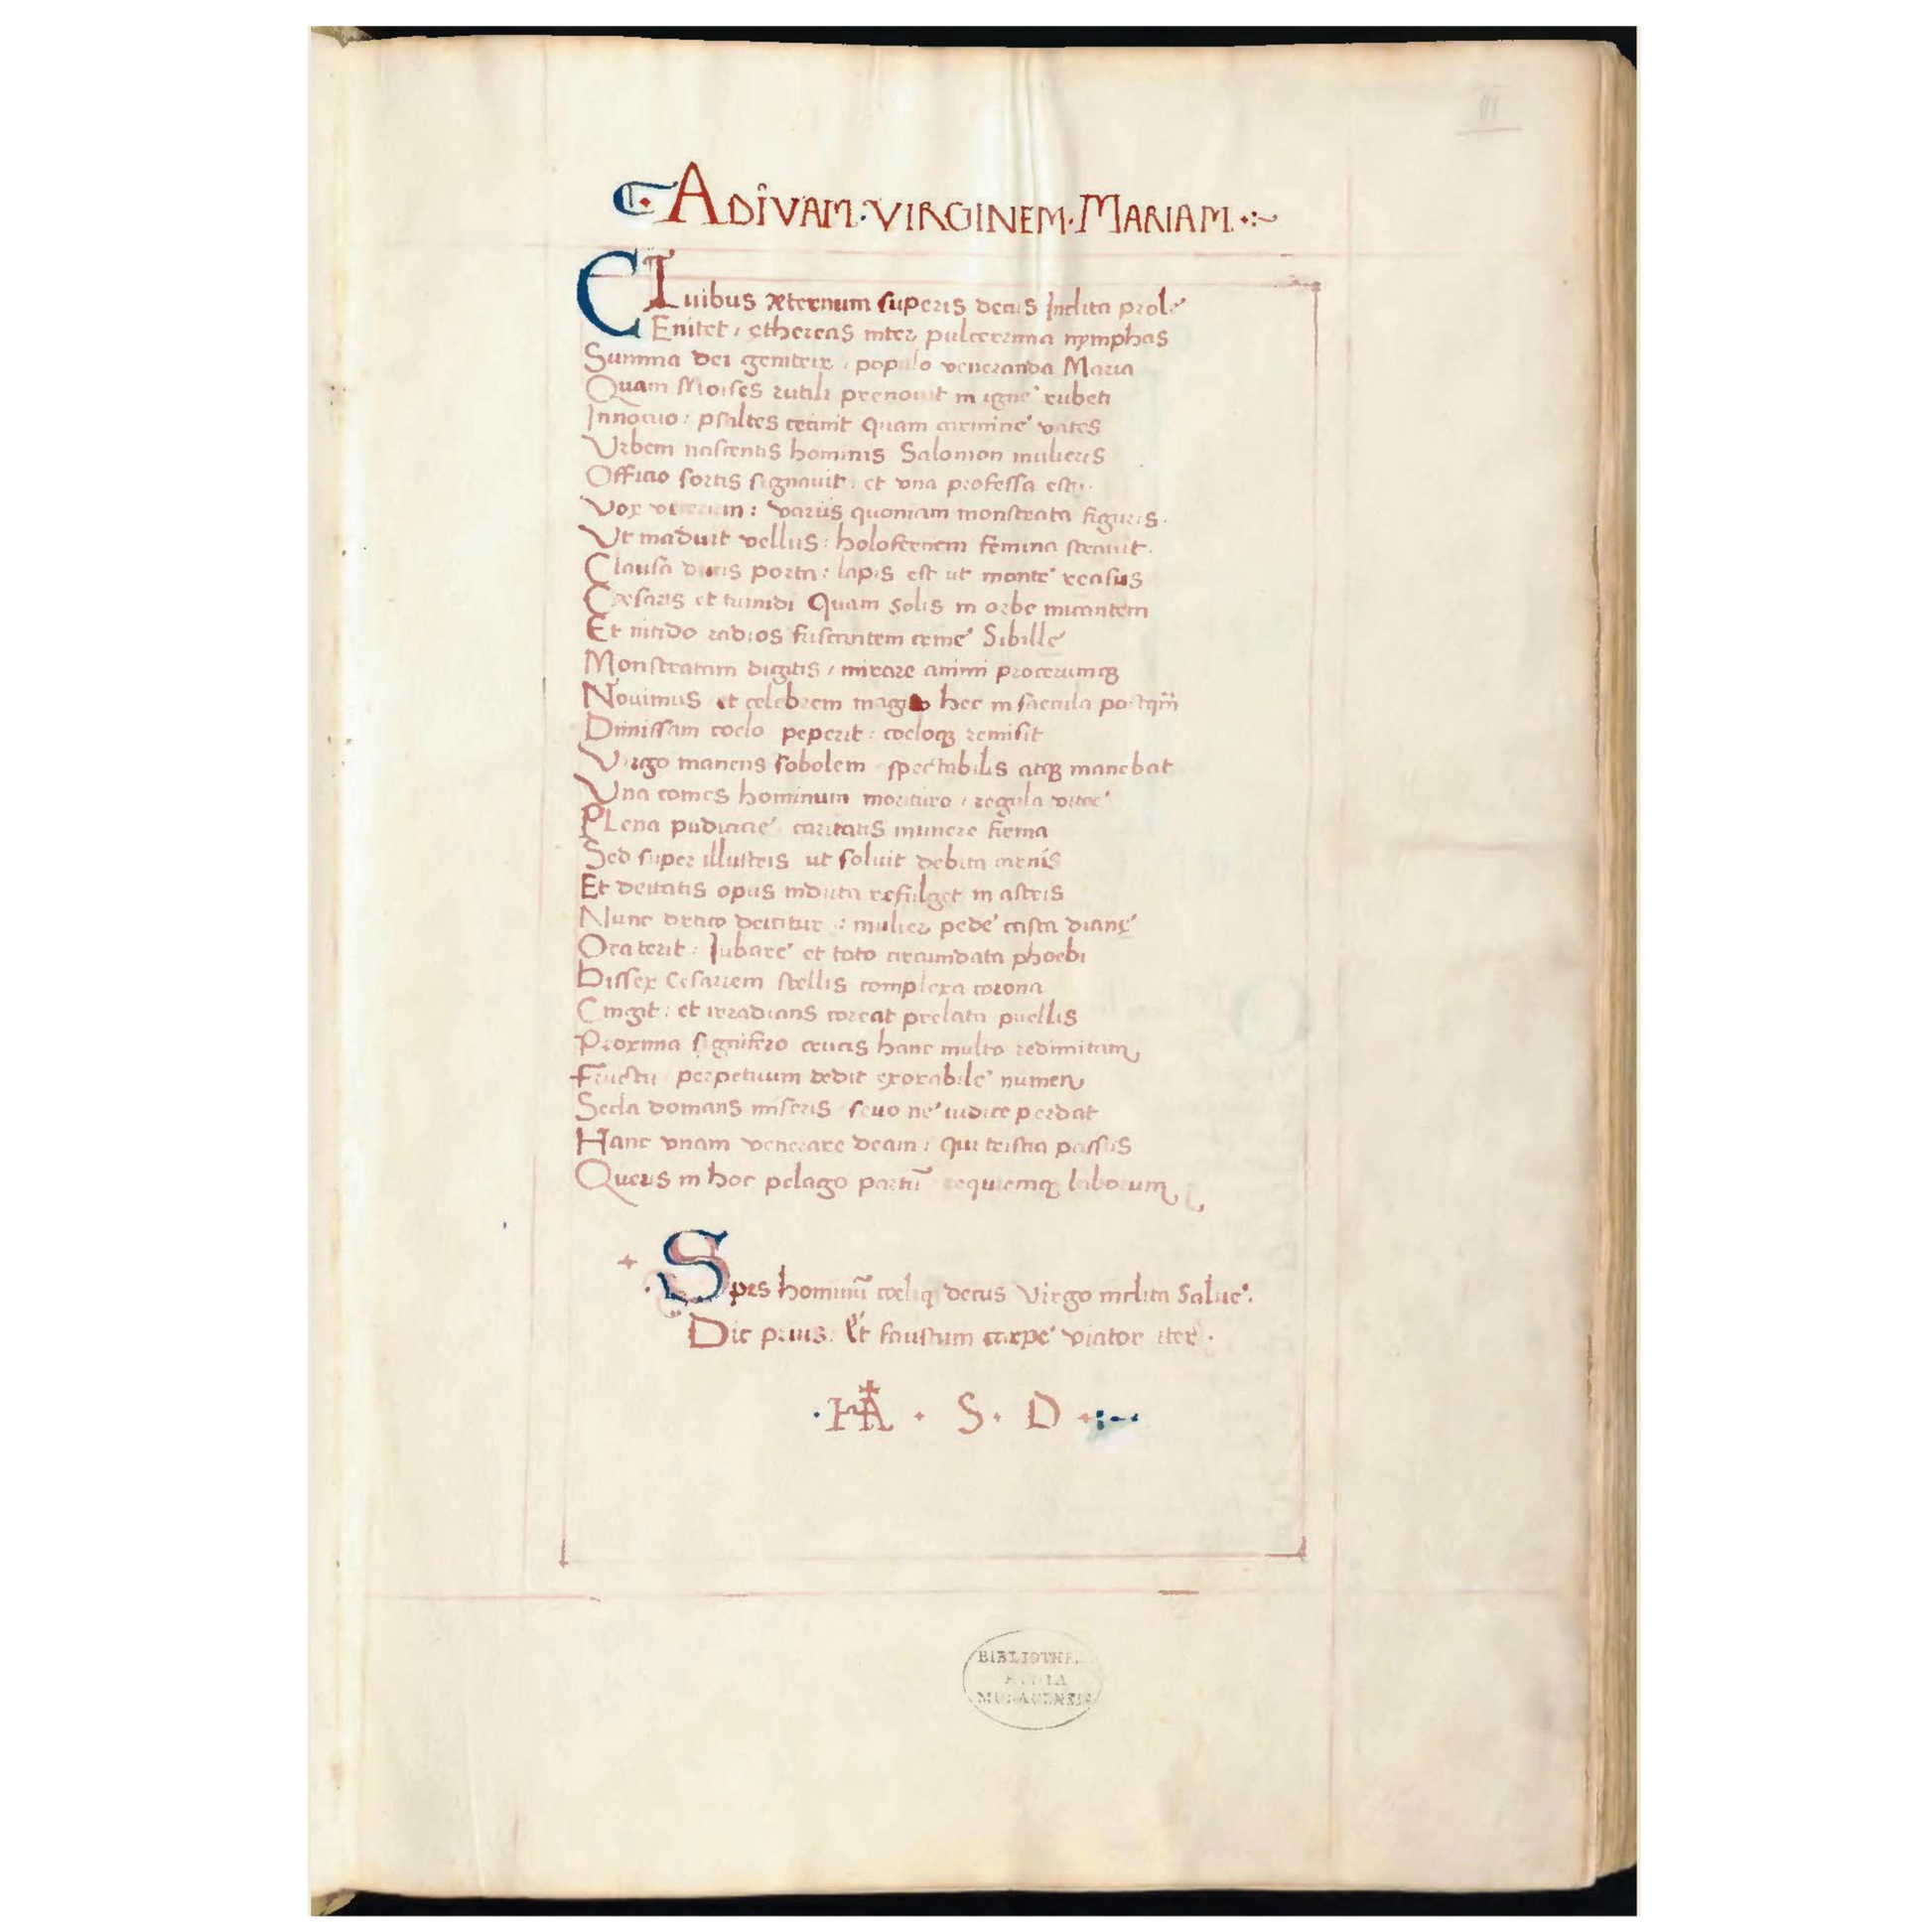 AD DIVAM·VIRGINEM·MARIAM
CIuibus æternum superis decus Inclita prole
Enitet, ethereas inter pulcerrima nymphas
Summa dei genitrix, populo veneranda Maria
Quam Moises rutili prenouit in igne rubeti
Innocuo: psaltes cecinit Quam carmine vates
Vrbem nascentis hominis Salomon mulieris
Officio fortis signauit: et vna professa est
Vox veterum: variis quoniam monstrata figuris.
Vt maduit vellus: holofernem femina strauit.
Clausa ducis porta: lapis est ut monte recisus
Cæsaris et tumidi Quam Solis in orbe micantem
Et nitido radios fuscantem cerne Sibille
Monstratam digitis, mirare animi procerumq
Nouimus et celebrem magis hec in saecula postqm
Dimissam coelo peperit: coeloq remisit
Virgo manens sobolem spectabilis atq manebat
Vna comes hominum morituro, regula vitae
PLena pudicicie caritatis munere firma
Sed super illustris ut soluit debita carnis
Et deitatis opus induta refulget in astris
Nunc draco deicitur: mulier pede casta dianę
Ora terit: Iubare et toto circumdata phoebi
Bissex Cesariem stellis complexa corona
Cingit: et irradians coreat prelata puellis
Proxima signifero crucis hanc multo redimitam
Fructu perpetuum dedit exorabile numen
Secla domans miseris seuo ne iudice perdat
Hanc vnam venerare deam: qui tristia passus
Queris in hoc pelago partū requiemq laborum
Spes hominū coeliq decus Virgo inclita Salue.
Dic prius. Et faustum carpe viator iter.
·HA · S· D
BIBLIOTHE
REGIA
MONACENSIS